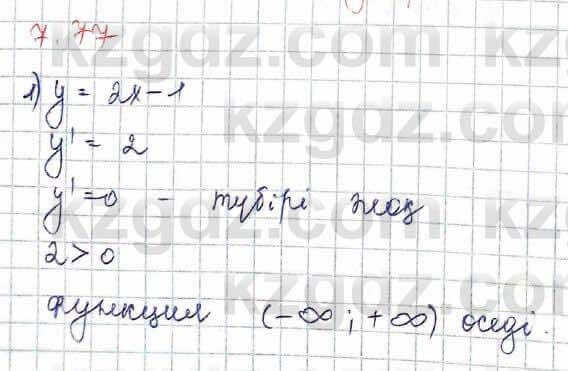 7.77
1) y = 2x - 1
y' = 2
y' = 0 - түбірі жоқ
2 > 0
Функция (-∞; +∞) өседі.
kzgdz.com
kzgdz.com
kzgdz.com
kzgdz.com
kzgdz.com
kzgdz.com